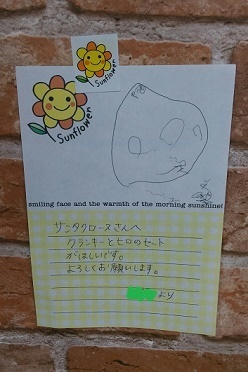 Sunflower
Sunflower
smiling face and the warmth of the morning sunshine!
サンタクロースさんへ
クランキーとヒロのセット
がほしいです。
よろしくお願いします。
より